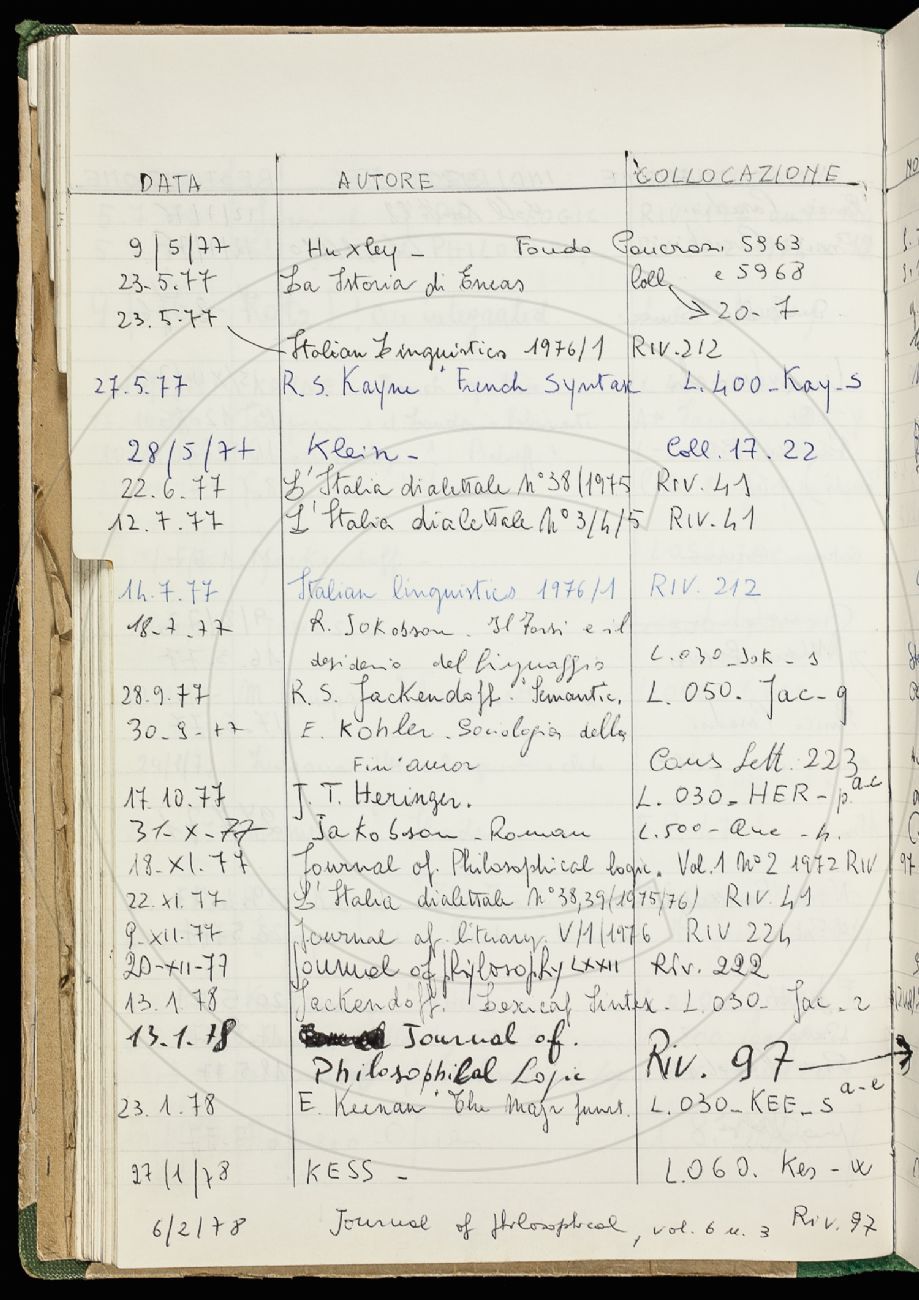 DATA AUTORE COLLOCAZIONE
9/5/77 Huxley - Fondo Pancrazi 5963
23.5.77 La Istoria di Eneas Coll. e 5968
23.5.77 20-7
Italian Linguistics 1976/1 RIV.212
27.5.77 R. S. Kayne "French Syntax L.400-Kay-S
28/5/77 Klein - Coll. 17.22
22.6.77 L'Italia dialettale N°38/1975 RIV. 41
12.7.77 L'Italia dialettale N° 3/4/5 RIV. 41
14.7.77 Italian linguistics 1976/1 RIV. 212
18.7.77 R. Jakobson. Il Farsi e il
desiderio del linguaggio L.030-Jak-s
28.9.77 R. S. Jackendoff: Semantic. L. 050. Jac-g
30-9-77 E. Köhler. Sociologia della
Fin'amor Cons Lett. 223
17.10.77 J. T. Heringer. L. 030-HER-p. a-c
31-X-77 Jakobson - Roman L.500-Que-h.
18-XI.77 Journal of. Philosophical logic. Vol.1 N°2 1972 RIV 97
22.XI.77 L'Italia dialettale N°38,39/(1975/76) RIV. 41
9.XII.77 Journal of lituary. V/1/1976 RIV 224
20-XII-77 Journal of philosophy LXXII Riv. 222
13.1.78 Jackendoff. Lexical Sintex. L.030-Jac-r
13.1.78 Journal of.
Philosophical Logic Riv. 97
23.1.78 E. Keenan "The major funct. L.030-KEE-S a-e
27/1/78 KESS - L.060. Kes-w
6/2/78 Journal of Philosophical, vol. 6 n. 3 Riv. 97